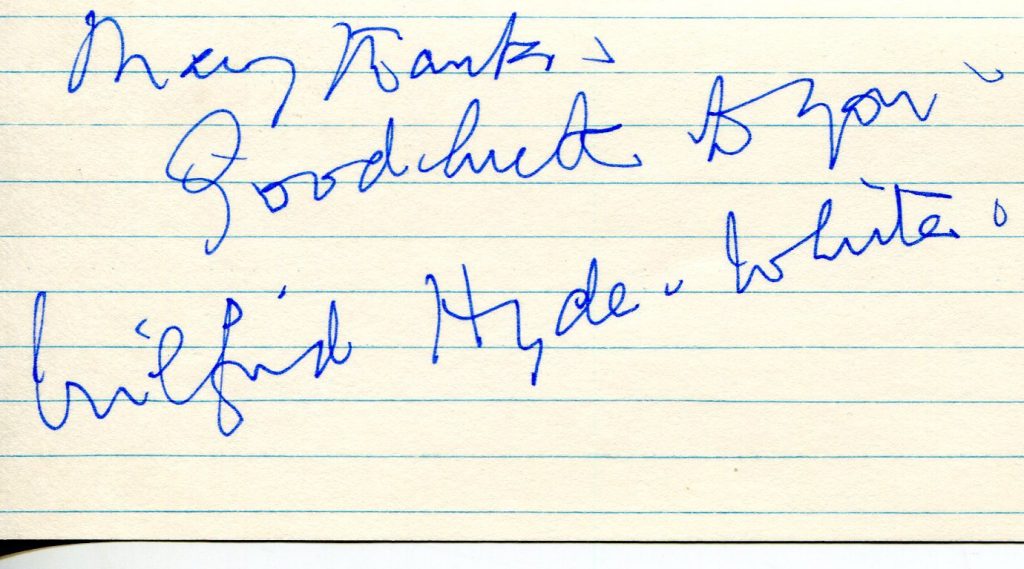 Many Thanks -
Good luck to you -
Wilfrid Hyde-White.